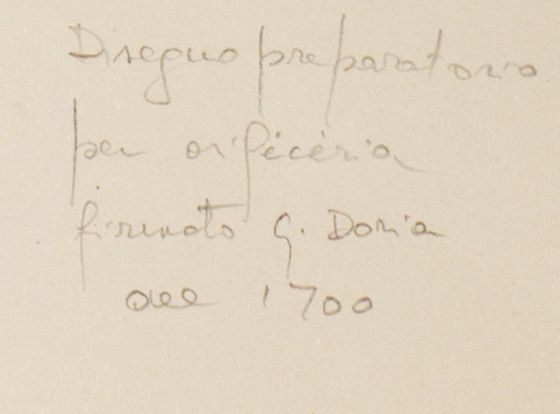 Disegno preparatorio
per orificeria
firmato G. Doria
del 1700